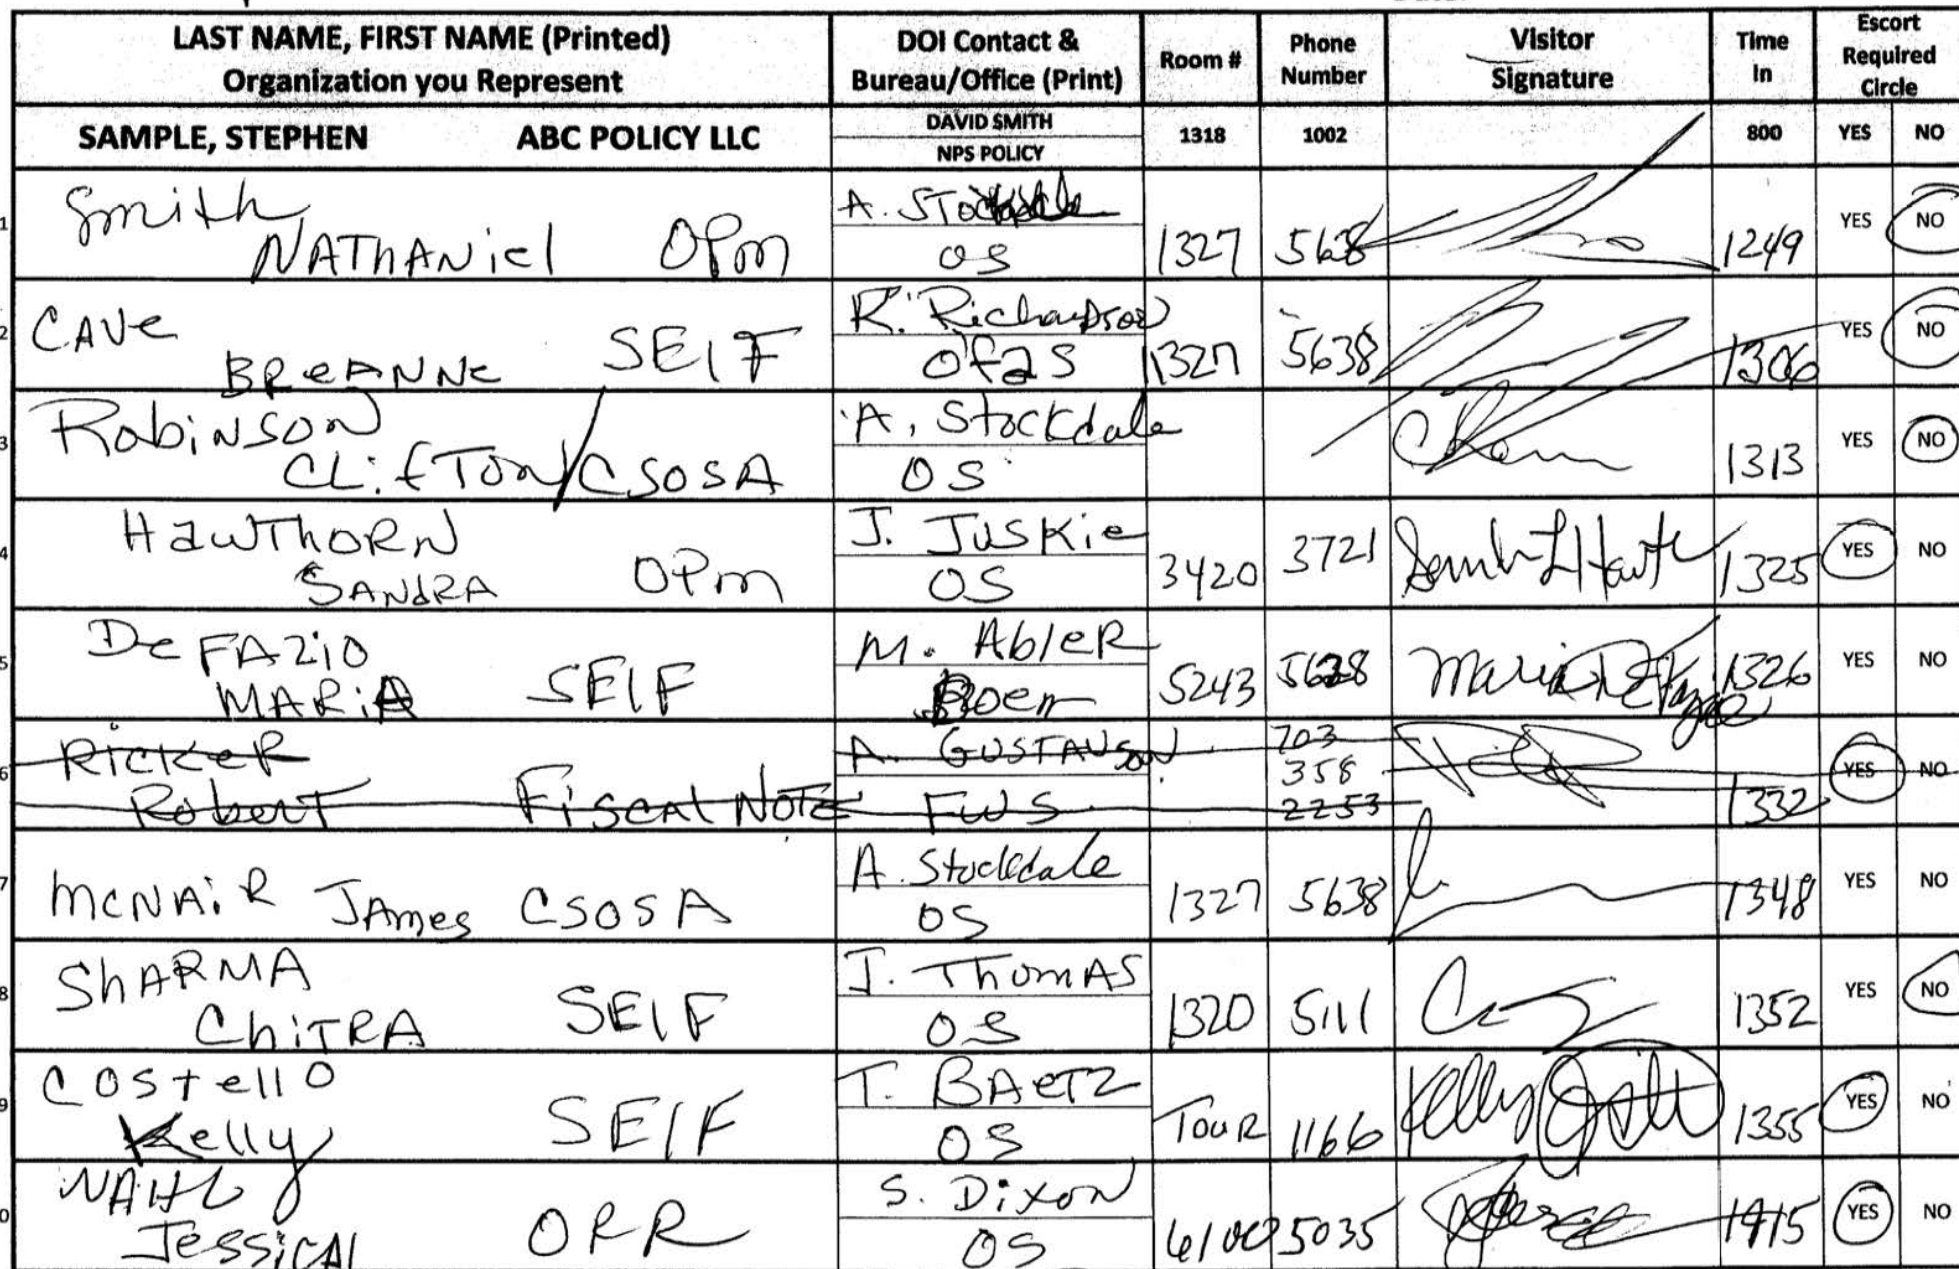 LAST NAME, FIRST NAME (Printed)
Organization you Represent
DOI Contact &
Bureau/Office (Print)
Room #
Phone
Number
Visitor
Signature
Time
In
Escort
Required
Circle
SAMPLE, STEPHEN ABC POLICY LLC
DAVID SMITH
NPS POLICY
1318 1002 800 YES NO
1 Smith,
NATHANiel OPm
A. Stockdale
OS
1327 1249 YES NO
2 CAVe
BReANNe SElF
R. Richardson
1327 5638 1306 YES NO
3 RobiNSON
CLifTON/CSOSA
A. Stockdale
OS
1313 YES NO
4 HawThoRN
SANdRA OPm
J. JusKie
OS
3420 3721 1325 YES NO
5 De FAZiO
MARiA SElF
M. AbleR
Boem
5243 Maria DeFazio 1326 YES NO
6 RicKeR
RobeRT FiscAl NoTe
A. GUSTAVSON
FWS
703
358
2253
1332 YES NO
7 McNAiR JAmes CSOSA
A. Stockdale
OS
1327 5638 1348 YES NO
8 ShARMA
ChiTRA SElF
J. ThomAS
OS
1320 5111 1352 YES NO
9 COStellO
Kelly SElF
T. BAeTZ
OS
TouR 1166 Kelly 1355 YES NO
NAHL
JessicA
S. DixoN
OS
5035 1415 YES NO